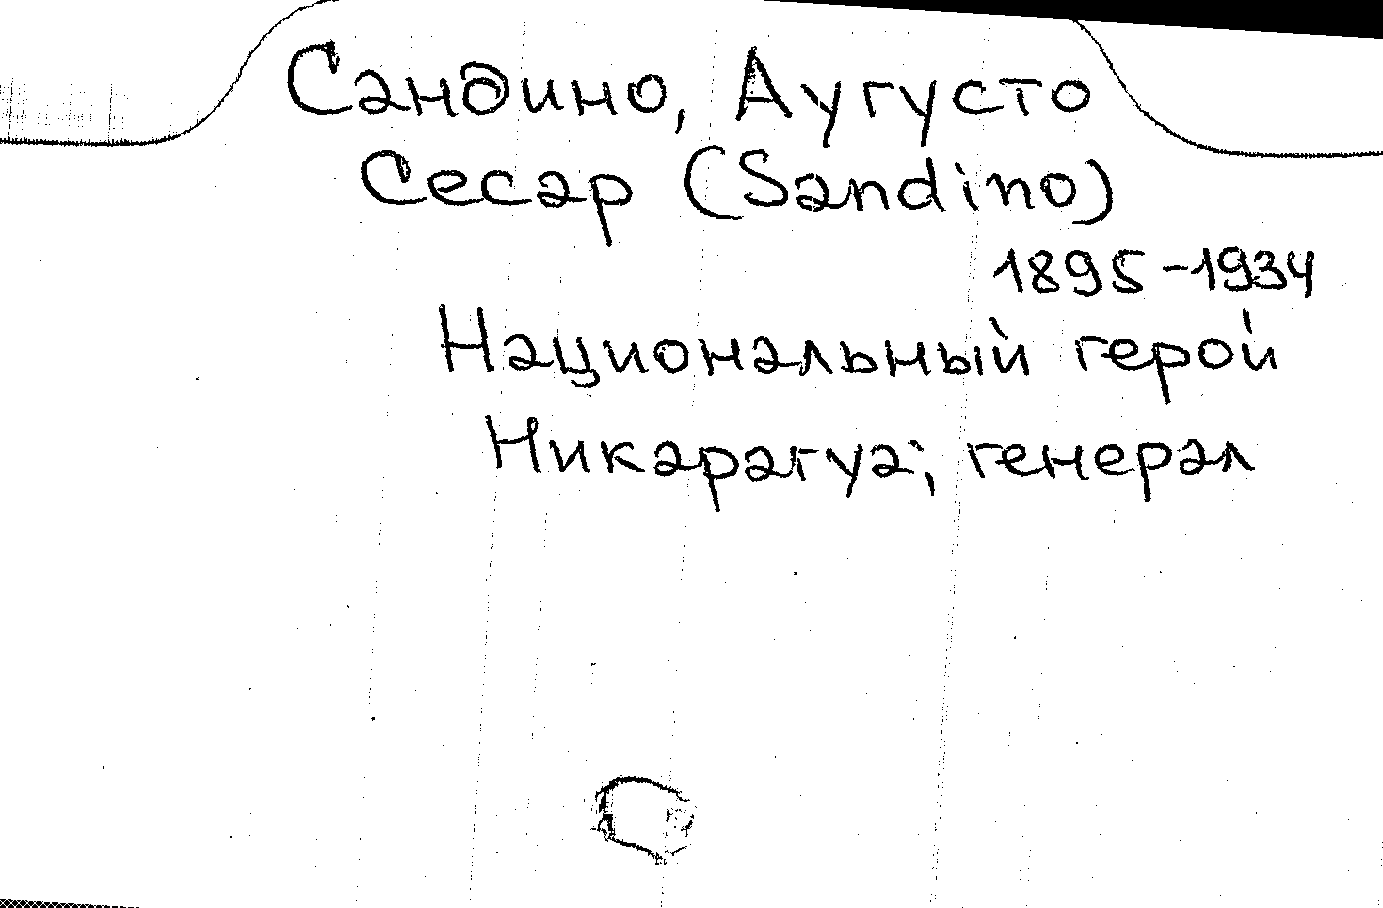 Сандино, Аугусто
Сесар (Sandino)
1895-1934
Национальный герой
Никарагуа; генерал